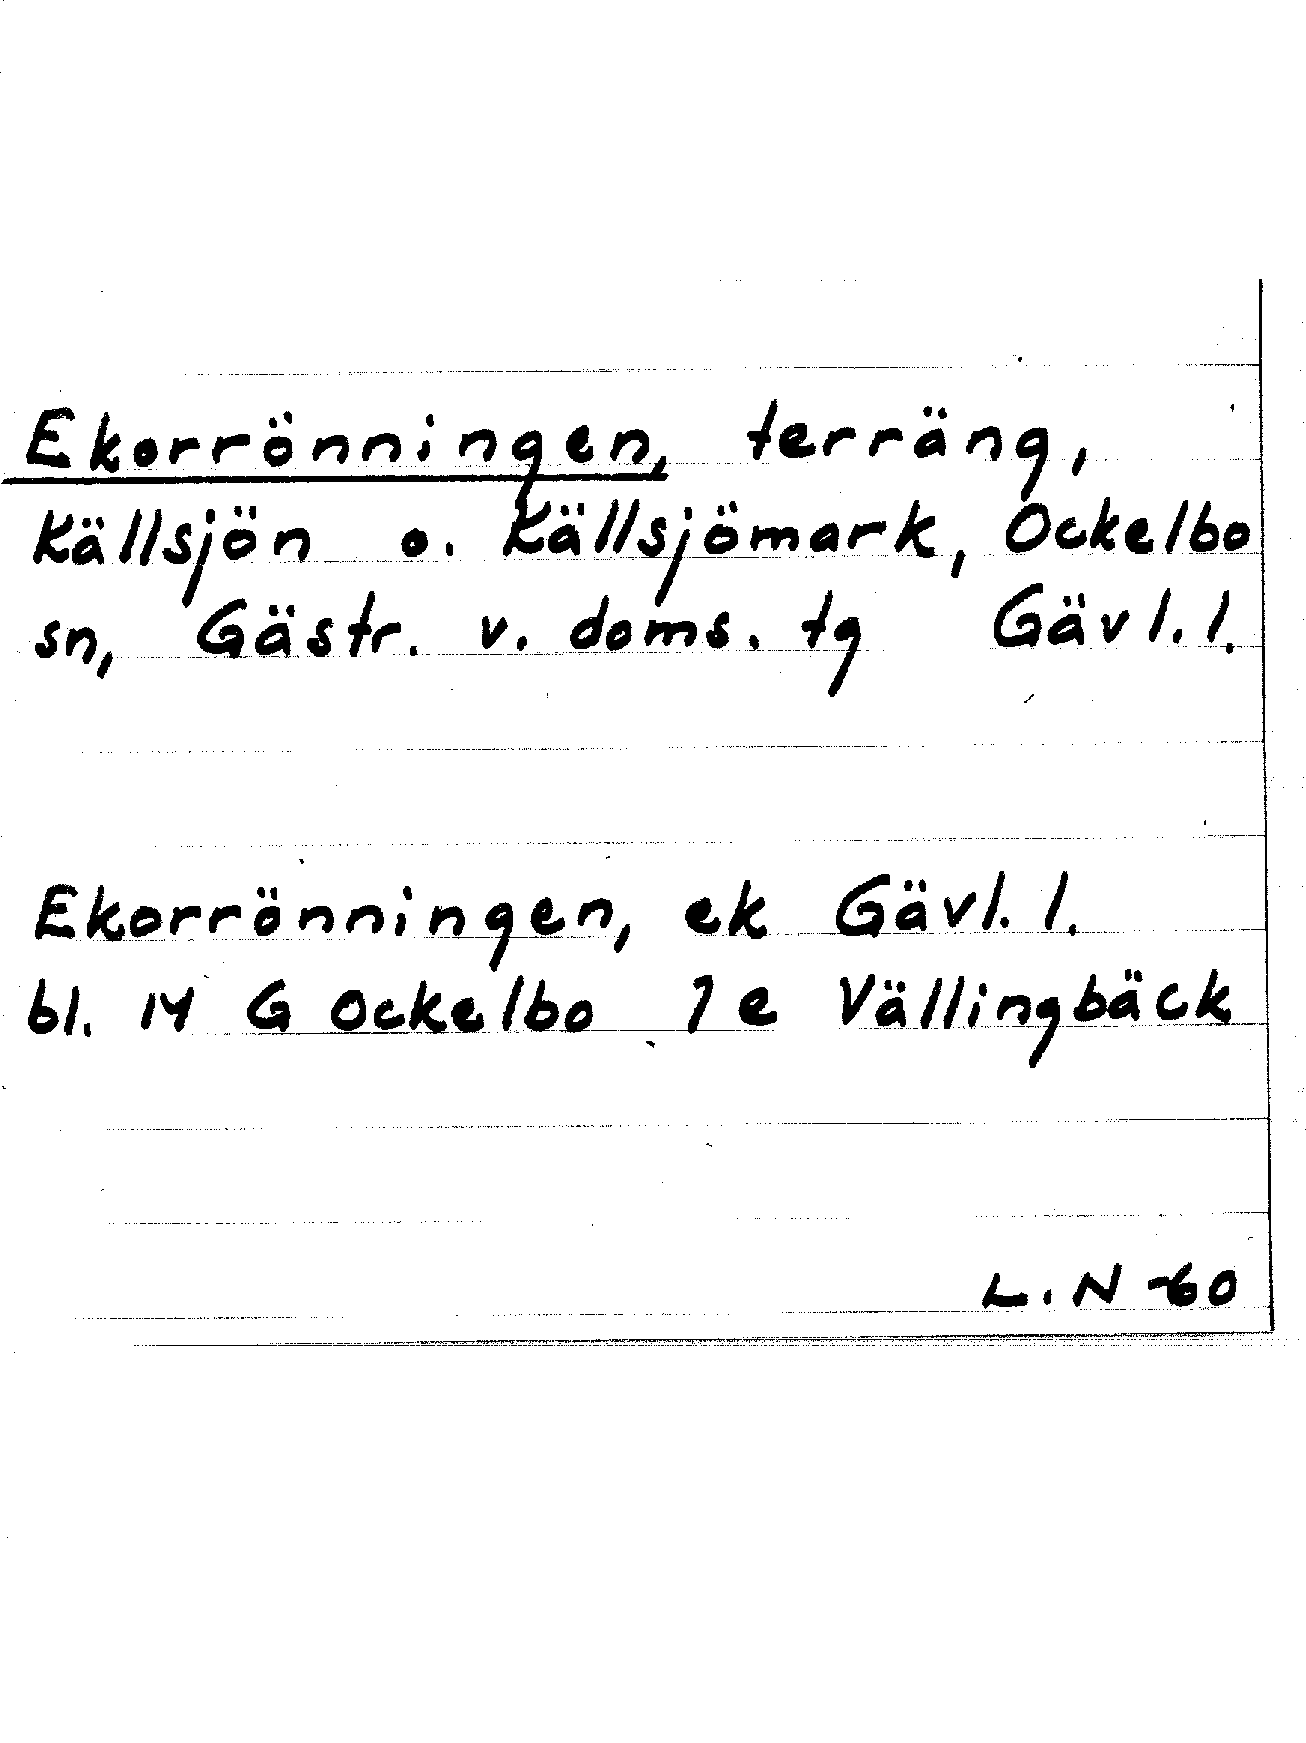 Ekorrönningen, terräng,
Källsjön o. Källsjömark, Ockelbo
sn, Gästr. v. doms. tg Gävl. l.
Ekorrönningen, ek Gävl. l.
bl. 14 G Ockelbo 7 e Vällingbäck
L. N -60